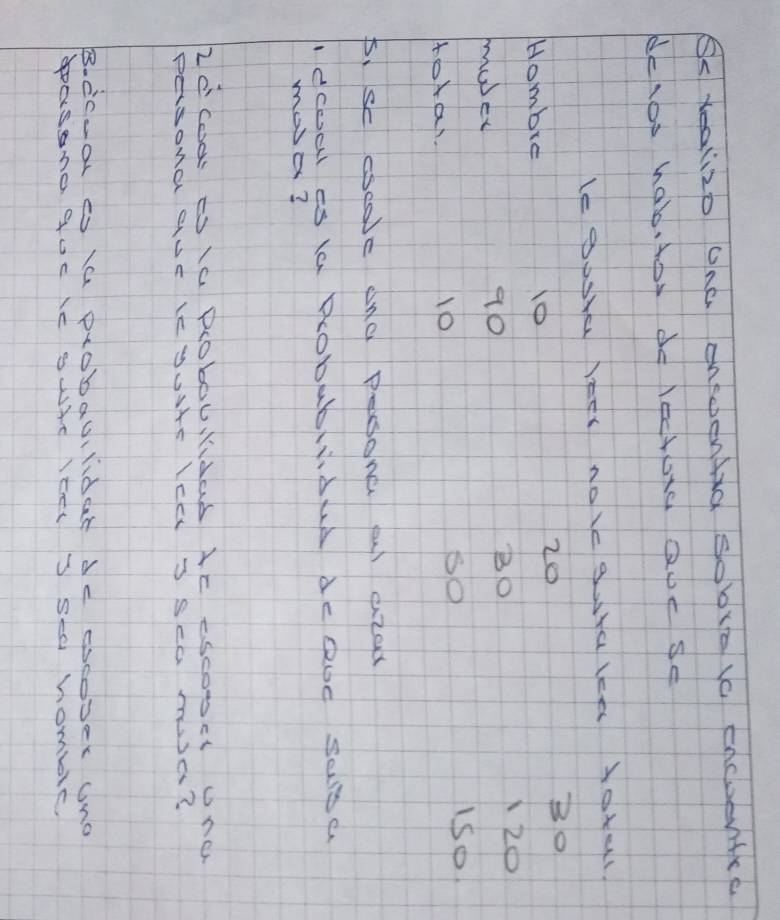 Se realizo una encuentra sobre la encuentra
de los habitos de lectura que se
le gusta leer no le gusta leer total.
Hombre 10 20 30
mujer 90 30 120
total. 10 50 150.
Si se escode una persona al azar
1. ¿cual es la probabilidad de que salga
mujer?
2 ¿cual es la probavilidad de escoger una
persona que le guste leer y sea mujer?
3. ¿cual es la probavilidad de escoger una
persona que le guste leer y sea hombre